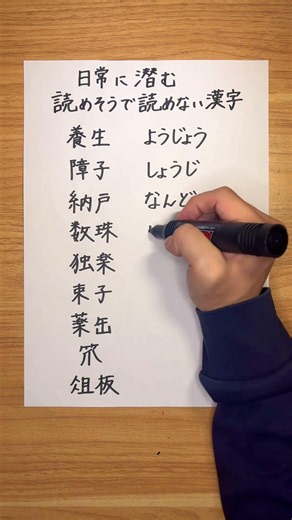 日常に潜む
読めそうで読めない漢字
養生 ようじょう
障子 しょうじ
納戸 なんど
数珠
独楽
束子
薬缶
笊
俎板